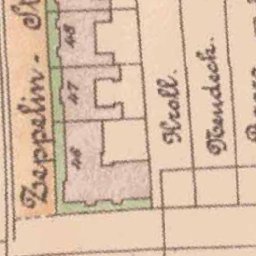 Zeppelin- St
48
47
46
Kroll.
Neudeck.